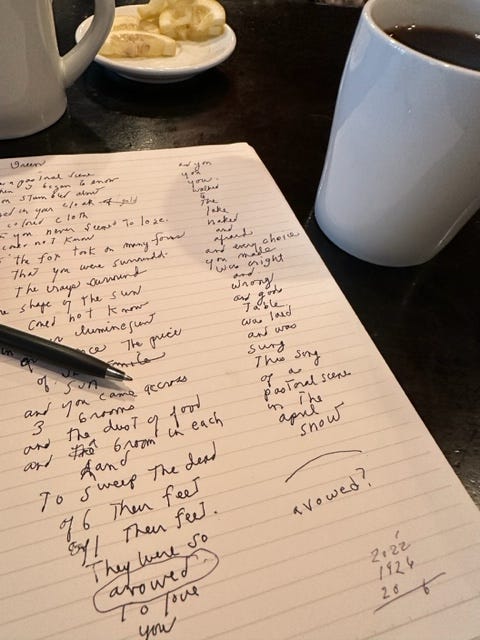 Green
a pastoral scene
began to snow
on stumbled down
in your cloak of gold
colored cloth
you never seemed to lose.
could not know
the fox took on many forms
That you were surround
The shape of the sun
could not know
The price
of
SUN
and you came across
3 brooms
and the dust of food
and broom in each
hand
To sweep The dead
of 6 Then feet
of 1 Then feet.
They were so
avowed
To love
you
and you
you
you.
walked
to
The
lake
naked
and
afraid
and every choice
you made
was right
and
wrong
and gone
Table
was laid
and was
sung
This song
of a
pastoral scene
in The
april
snow
avowed?
2022
1926
20 6